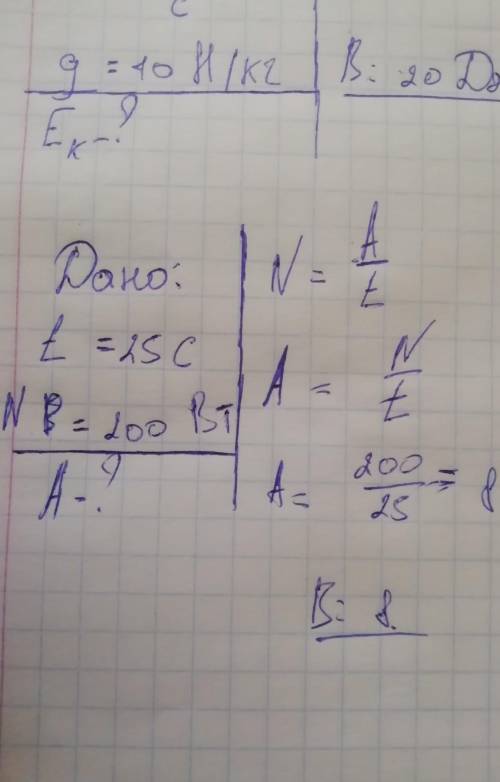 с
g = 10 Н/кг
В: 20 Дж
Eк - ?
Дано:
t = 25 с
N В = 200 Вт
A - ?
N = A/t
A = N/t
A = 200/25 = 8
В: 8.